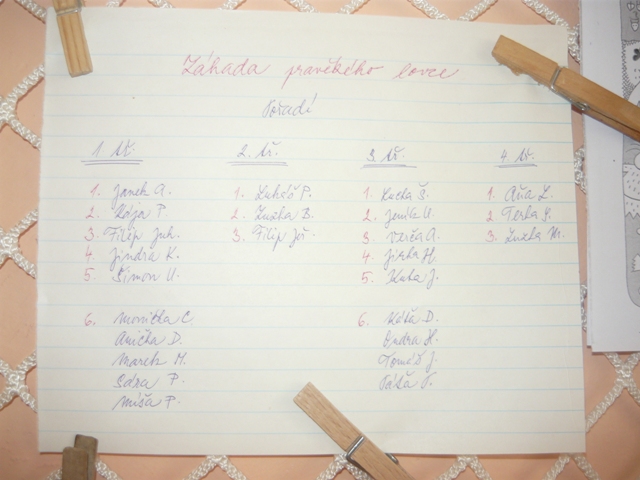 Záhada pravěkého lovce
Pořadí
1. tř. 2. tř. 3. tř. 4. tř.
1. Janek A. 1. Lukáš P. 1. Lucka Š. 1. Aňa L.
2. P. 2. Zuzka B. 2. Janík 2. Terka
3. Filip Juh. 3. Filip Još. 3. Verča A. 3. Zuzka M.
4. Jindra K. 4. Jirka H.
5. Šimon U. 5. Kuba J.
6. Monička C. 6. Káťa D.
Anička D. Ondra H.
Marek M. Tomáš J.
Sára P.
Míša P.